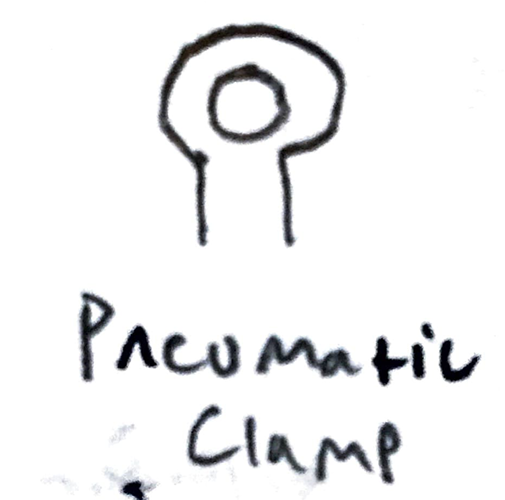 Pneumatic
Clamp